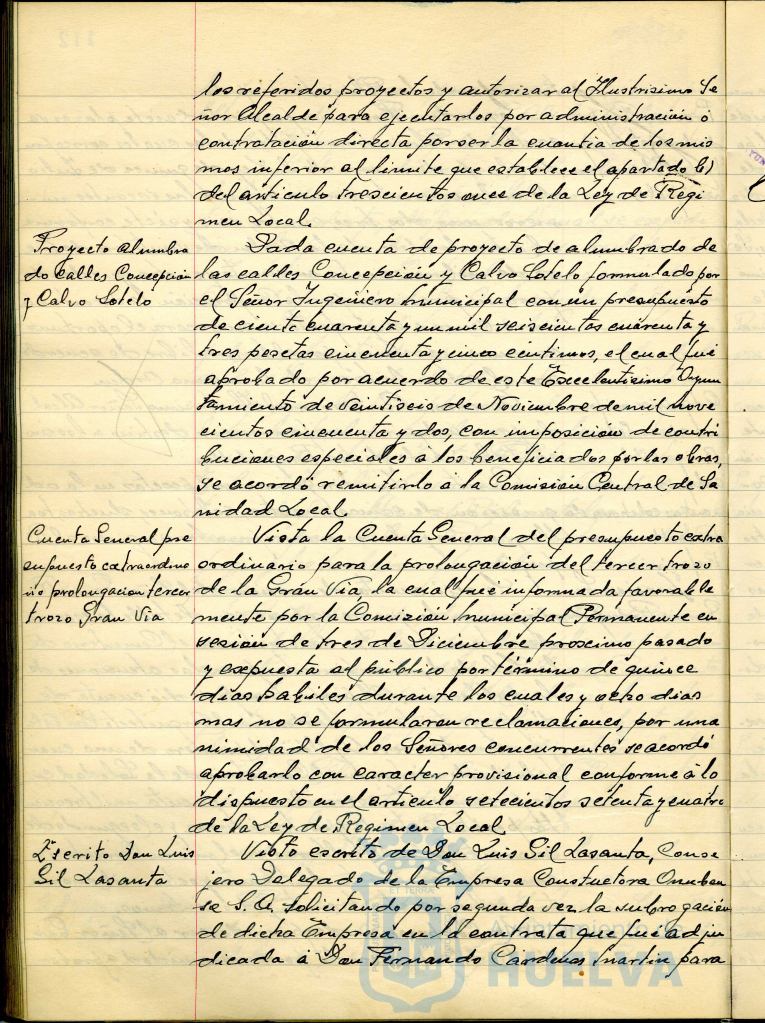 los referidos proyectos y autorizar al Ilustrisimo Se
ñor Alcalde para ejecutarlos por administración ó
contratación directa por ser la cuantia de los mis
mos inferior al limite que establece el apartado b)
del articulo trescientos once de la Ley de Regi
men Local.
Proyecto alumbra
do calles Concepción
y Calvo Sotelo
Dada cuenta de proyecto de alumbrado de
las calles Concepción y Calvo Sotelo formulado por
el Señor Ingeniero Municipal con un presupuesto
de ciento cuarenta y un mil seiscientas cuarenta y
tres pesetas cincuenta y cinco centimos, el cual fué
aprobado por acuerdo de este Excelentisimo Ayun
tamiento de veintiseis de Noviembre de mil nove
cientos cincuenta y dos, con imposición de contri
buciones especiales á los beneficiados por las obras,
se acordó remitirlo á la Comisión Central de Sa
nidad Local.
Cuenta General pre
supuesto extraordina
rio prolongacion tercer
trozo Gran Via
Vista la Cuenta General del presupuesto extra
ordinario para la prolongación del tercer trozo
de la Gran Via, la cual fué informada favorable
mente por la Comisión Municipal Permanente en
sesión de tres de Diciembre proximo pasado
y expuesta al público por término de quince
dias habiles durante los cuales y ocho dias
mas no se formularon reclamaciones, por una
nimidad de los Señores concurrentes se acordó
aprobarlo con caracter provisional conforme á lo
dispuesto en el articulo setecientos setenta y cuatro
de la Ley de Regimen Local.
2º escrito Don Luis
Gil Lasanta
Visto escrito de Don Luis Gil Lasanta, Conse
jero Delegado de la Empresa Constructora Onuben
se S.A. solicitando por segunda vez la subrogación
de dicha Empresa en la contrata que fué adju
dicada á Don Fernando Cárdenas Martin para
HUELVA